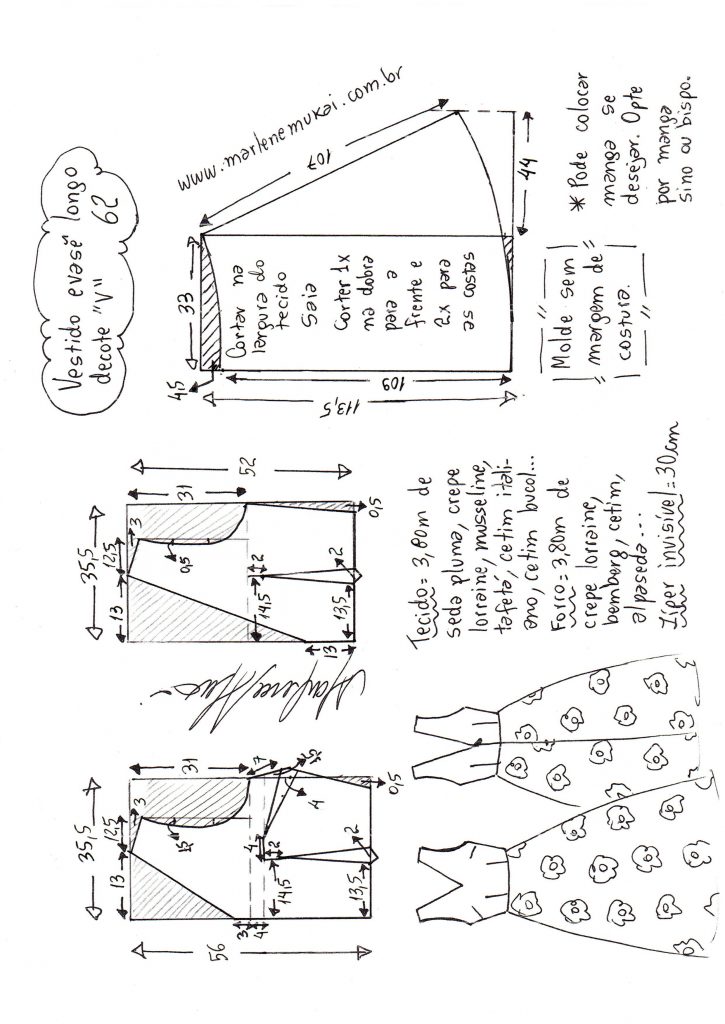 Vestido evasê longo
decote "V" 62
www.marlenemukai.com.br
107
33
44
45
109
113,5
Cortar na
largura do
tecido
Saia
Corter 1x
na dobra
para a
frente e
2x para
as costas
Molde sem
margem de
costura.
* Pode colocar
manga se
desejar. Opte
por manga
sino ou bispo.
35,5
13
12,5
3
31
52
0,5
2
14,5
13,5
2
13
0,5
Tecido = 3,80m de
seda pluma, crepe
lorraine, musseline,
tafetá, cetim itali-
ano, cetim bucol...
Forro = 3,80m de
crepe lorraine,
bemberg, cetim,
alpaseda...
Zíper invisível = 30cm
35,5
13
12,5
3
31
56
1,5
7
4
4
2
14,5
13,5
2
3
4
0,5